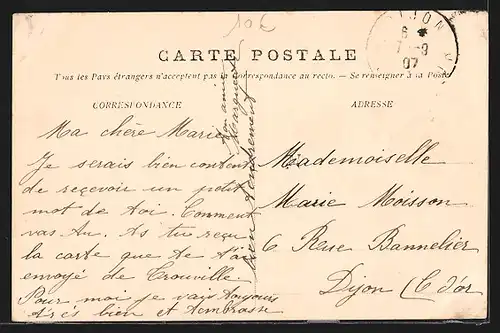 705
DIJON
6
7-9
07
CARTE POSTALE
Tous les Pays étrangers n'acceptent pas la Correspondance au recto. — Se renseigner à la Poste
CORRESPONDANCE
ADRESSE
Ma chère Marie
Je serais bien content
de reçevoir un petit
mot de toi. Comment
vas tu. As tu reçu
la carte que je t'ai
envoyé de Trouville.
Pour moi je vais toujours
très bien et t'embrasse
bien tendrement
ton amie
Mademoiselle
Marie Moisson
6 Rue Bannelier
Dijon (C d'or